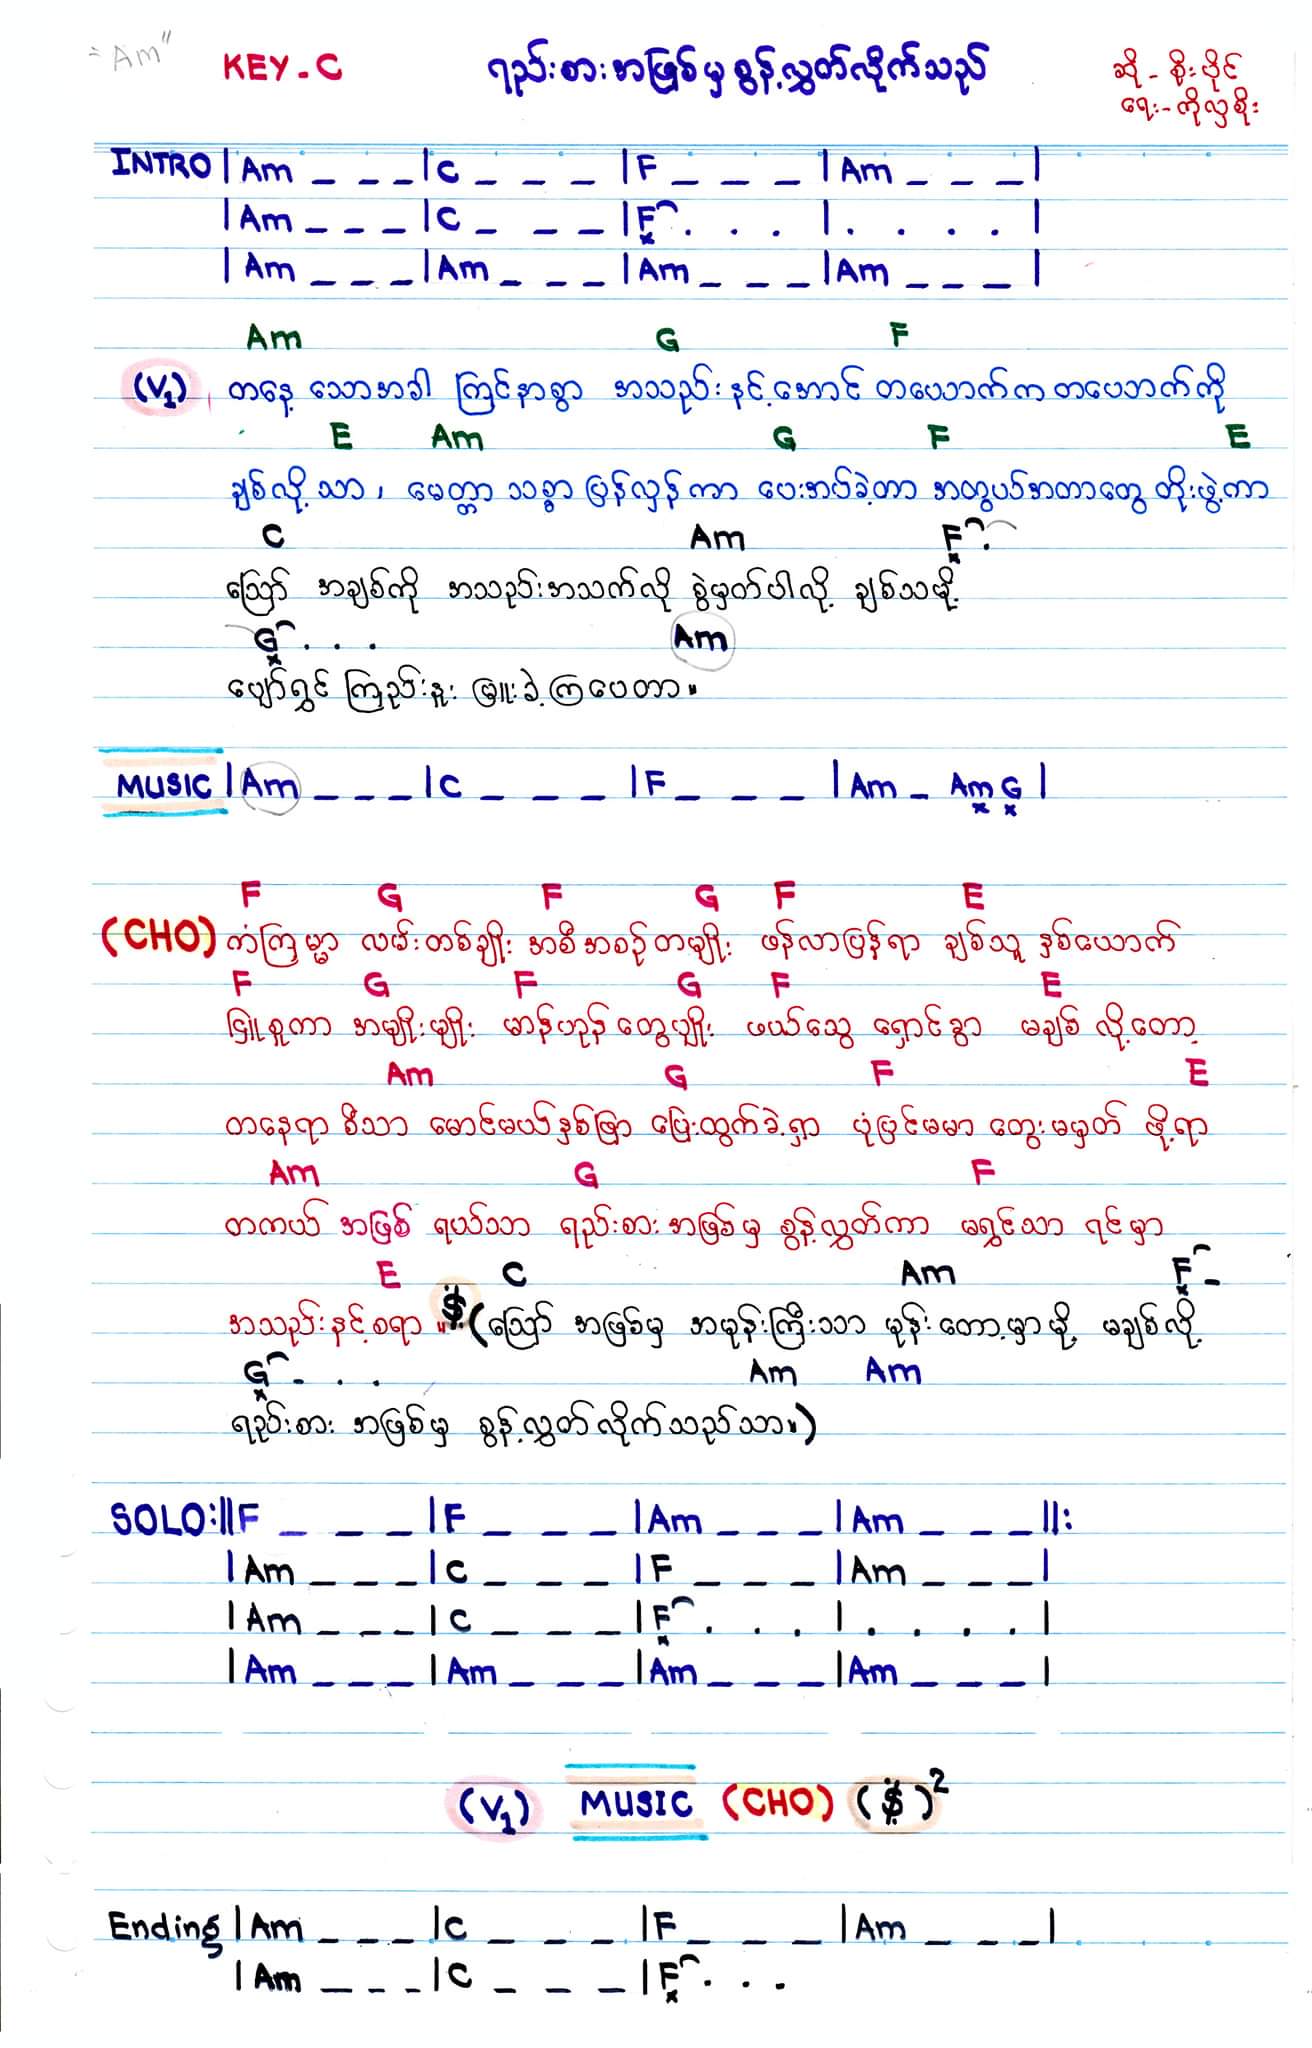 "Am"
KEY-C ရည်းစားအဖြစ်မှစွန့်လွှတ်လိုက်သည် ဆို - စိုးပိုင်
ရေး - ကိုလှစိုး
INTRO | Am _ _ _ | C _ _ _ | F _ _ _ | Am _ _ _ |
| Am _ _ _ | C _ _ _ | F . . . | . . . . |
| Am _ _ _ | Am _ _ _ | Am _ _ _ | Am _ _ _ |
Am G F
(V1) တနေ့ သောအခါ ကြင်နာစွာ အသည်းနင့်အောင် တယောက်က တယောက်ကို
E Am G F E
ချစ်လို့သာ၊ မေတ္တာသစ္စာ ပြန်လှန်ကာ ပေးအပ်ခဲ့တာ အတွယ်အတာတွေ တိုးဖွဲ့ကာ
C Am F .
ဪ အချစ်ကို အသည်းအသက်လို စွဲမှတ်ပါလို့ ချစ်သမို့
G . . . Am
ပျော်ရွှင် ကြည်နူး မြူးခဲ့ကြပေတာ။
MUSIC | Am _ _ _ | C _ _ _ | F _ _ _ | Am _ Am G |
F G F G F E
(CHO) ကံကြမ္မာ လမ်းတစ်ချိုး အစီအစဉ်တမျိုး ဖန်လာပြန်ရာ ချစ်သူ နှစ်ယောက်
F G F G F E
ဖြူစူကာ အမျိုးမျိုး မာန်ဟုန်တွေပျိုး ဖယ်သွေ ရှောင်ခွာ မချစ် လို့တော့
Am G F E
တနေရာစီသာ မောင်မယ်နှစ်ဖြာ ပြေးထွက်ခဲ့ရှာ ပုံပြင်မမာ တွေးမမှတ် ဖို့ရာ
Am G F
တကယ် အဖြစ် ရယ်သာ ရည်းစားအဖြစ်မှ စွန့်လွှတ်ကာ မရွှင်သာ ရင်မှာ
E C Am F -
အသည်းနင့်စရာ ။ $ (ဪ အဖြစ်မှ အမုန်းကြီးသာ မုန်းတော့မှာမို့ မချစ်လို့
G - . . Am Am
ရည်းစား အဖြစ်မှ စွန့်လွှတ်လိုက်သည်သာ။)
SOLO :|| F _ _ _ | F _ _ _ | Am _ _ _ | Am _ _ _ ||:
| Am _ _ _ | C _ _ _ | F _ _ _ | Am _ _ _ |
| Am _ _ _ | C _ _ _ | F . . . | . . . . |
| Am _ _ _ | Am _ _ _ | Am _ _ _ | Am _ _ _ |
(V1) MUSIC (CHO) ($)2
Ending | Am _ _ _ | C _ _ _ | F _ _ _ | Am _ _ _ |
| Am _ _ _ | C _ _ _ | F . . .